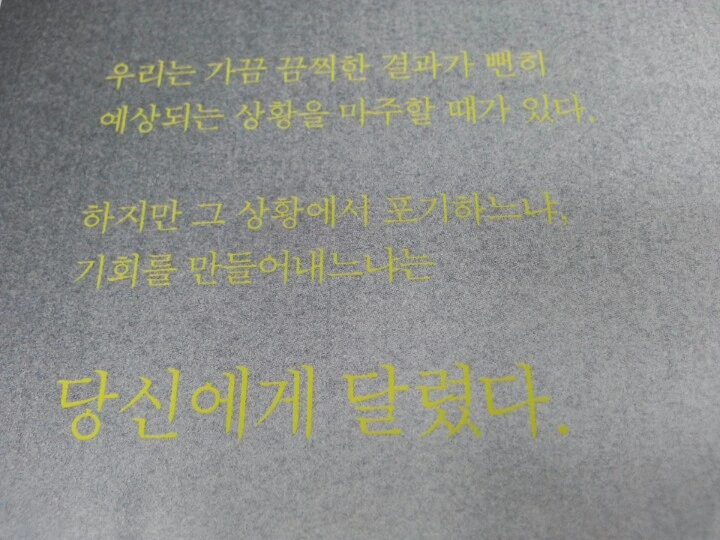 우리는 가끔 끔찍한 결과가 뻔히
예상되는 상황을 마주할 때가 있다.
하지만 그 상황에서 포기하느냐,
기회를 만들어내느냐는
당신에게 달렸다.